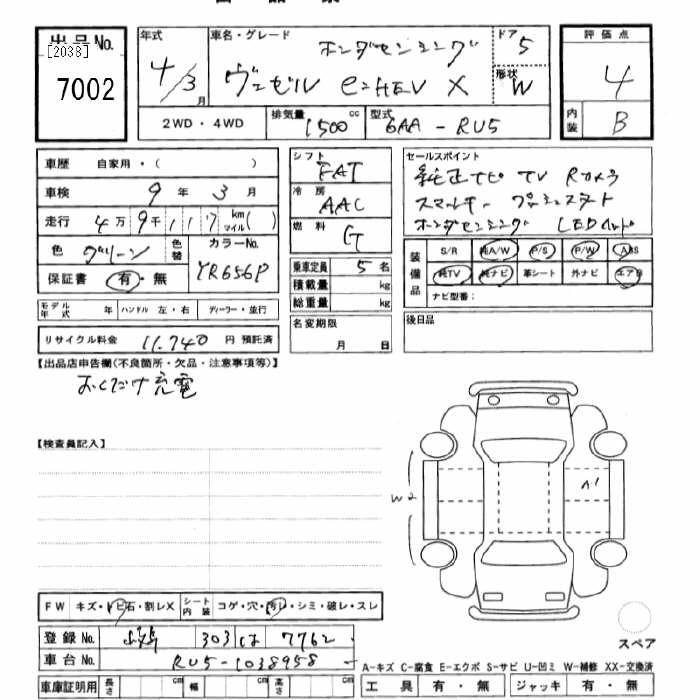 出品No.
[2033]
7002
年式
4/3月
車名・グレード
ホンダセンシング
ヴェゼル e:HEV X
ドア 5
形状 W
評価点
4
内装 B
2WD・4WD
排気量 1500 cc
型式 6AA-RU5
車歴 自家用・( )
車検 9年 3月
走行 4万9千117 km マイル( )
色 グリーン 色替
カラーNo. YR656P
保証書 有・無
モデル年式 年 ハンドル 左・右 ディーラー・並行
リサイクル料金 11.740 円 預託済
シフト FAT
冷房 AAC
燃料 G
乗車定員 5名
積載量 kg
総重量 kg
名変期限 月 日
セールスポイント
純正ナビ TV Rカメラ
スマートキー プッシュスタート
ホンダセンシング LEDライト
装備品
S/R 純A/W P/S P/W ABS
純TV 純ナビ 革シート 外ナビ エアB
ナビ型番:
後日品
【出品店申告欄(不良箇所・欠品・注意事項等)】
おくだけ充電
【検査員記入】
W2
A1
FW キズ・トビ石・割レX シート内装 コゲ・穴・汚レ・シミ・破レ・スレ
登録No. 303 は 7762
車台No. RU5-1038958
車庫証明用 長さ cm 幅 cm 高さ cm
スペア
A-キズ C-腐食 E-エクボ S-サビ U-凹ミ W-補修 XX-交換済
工具 有・無 ジャッキ 有・無